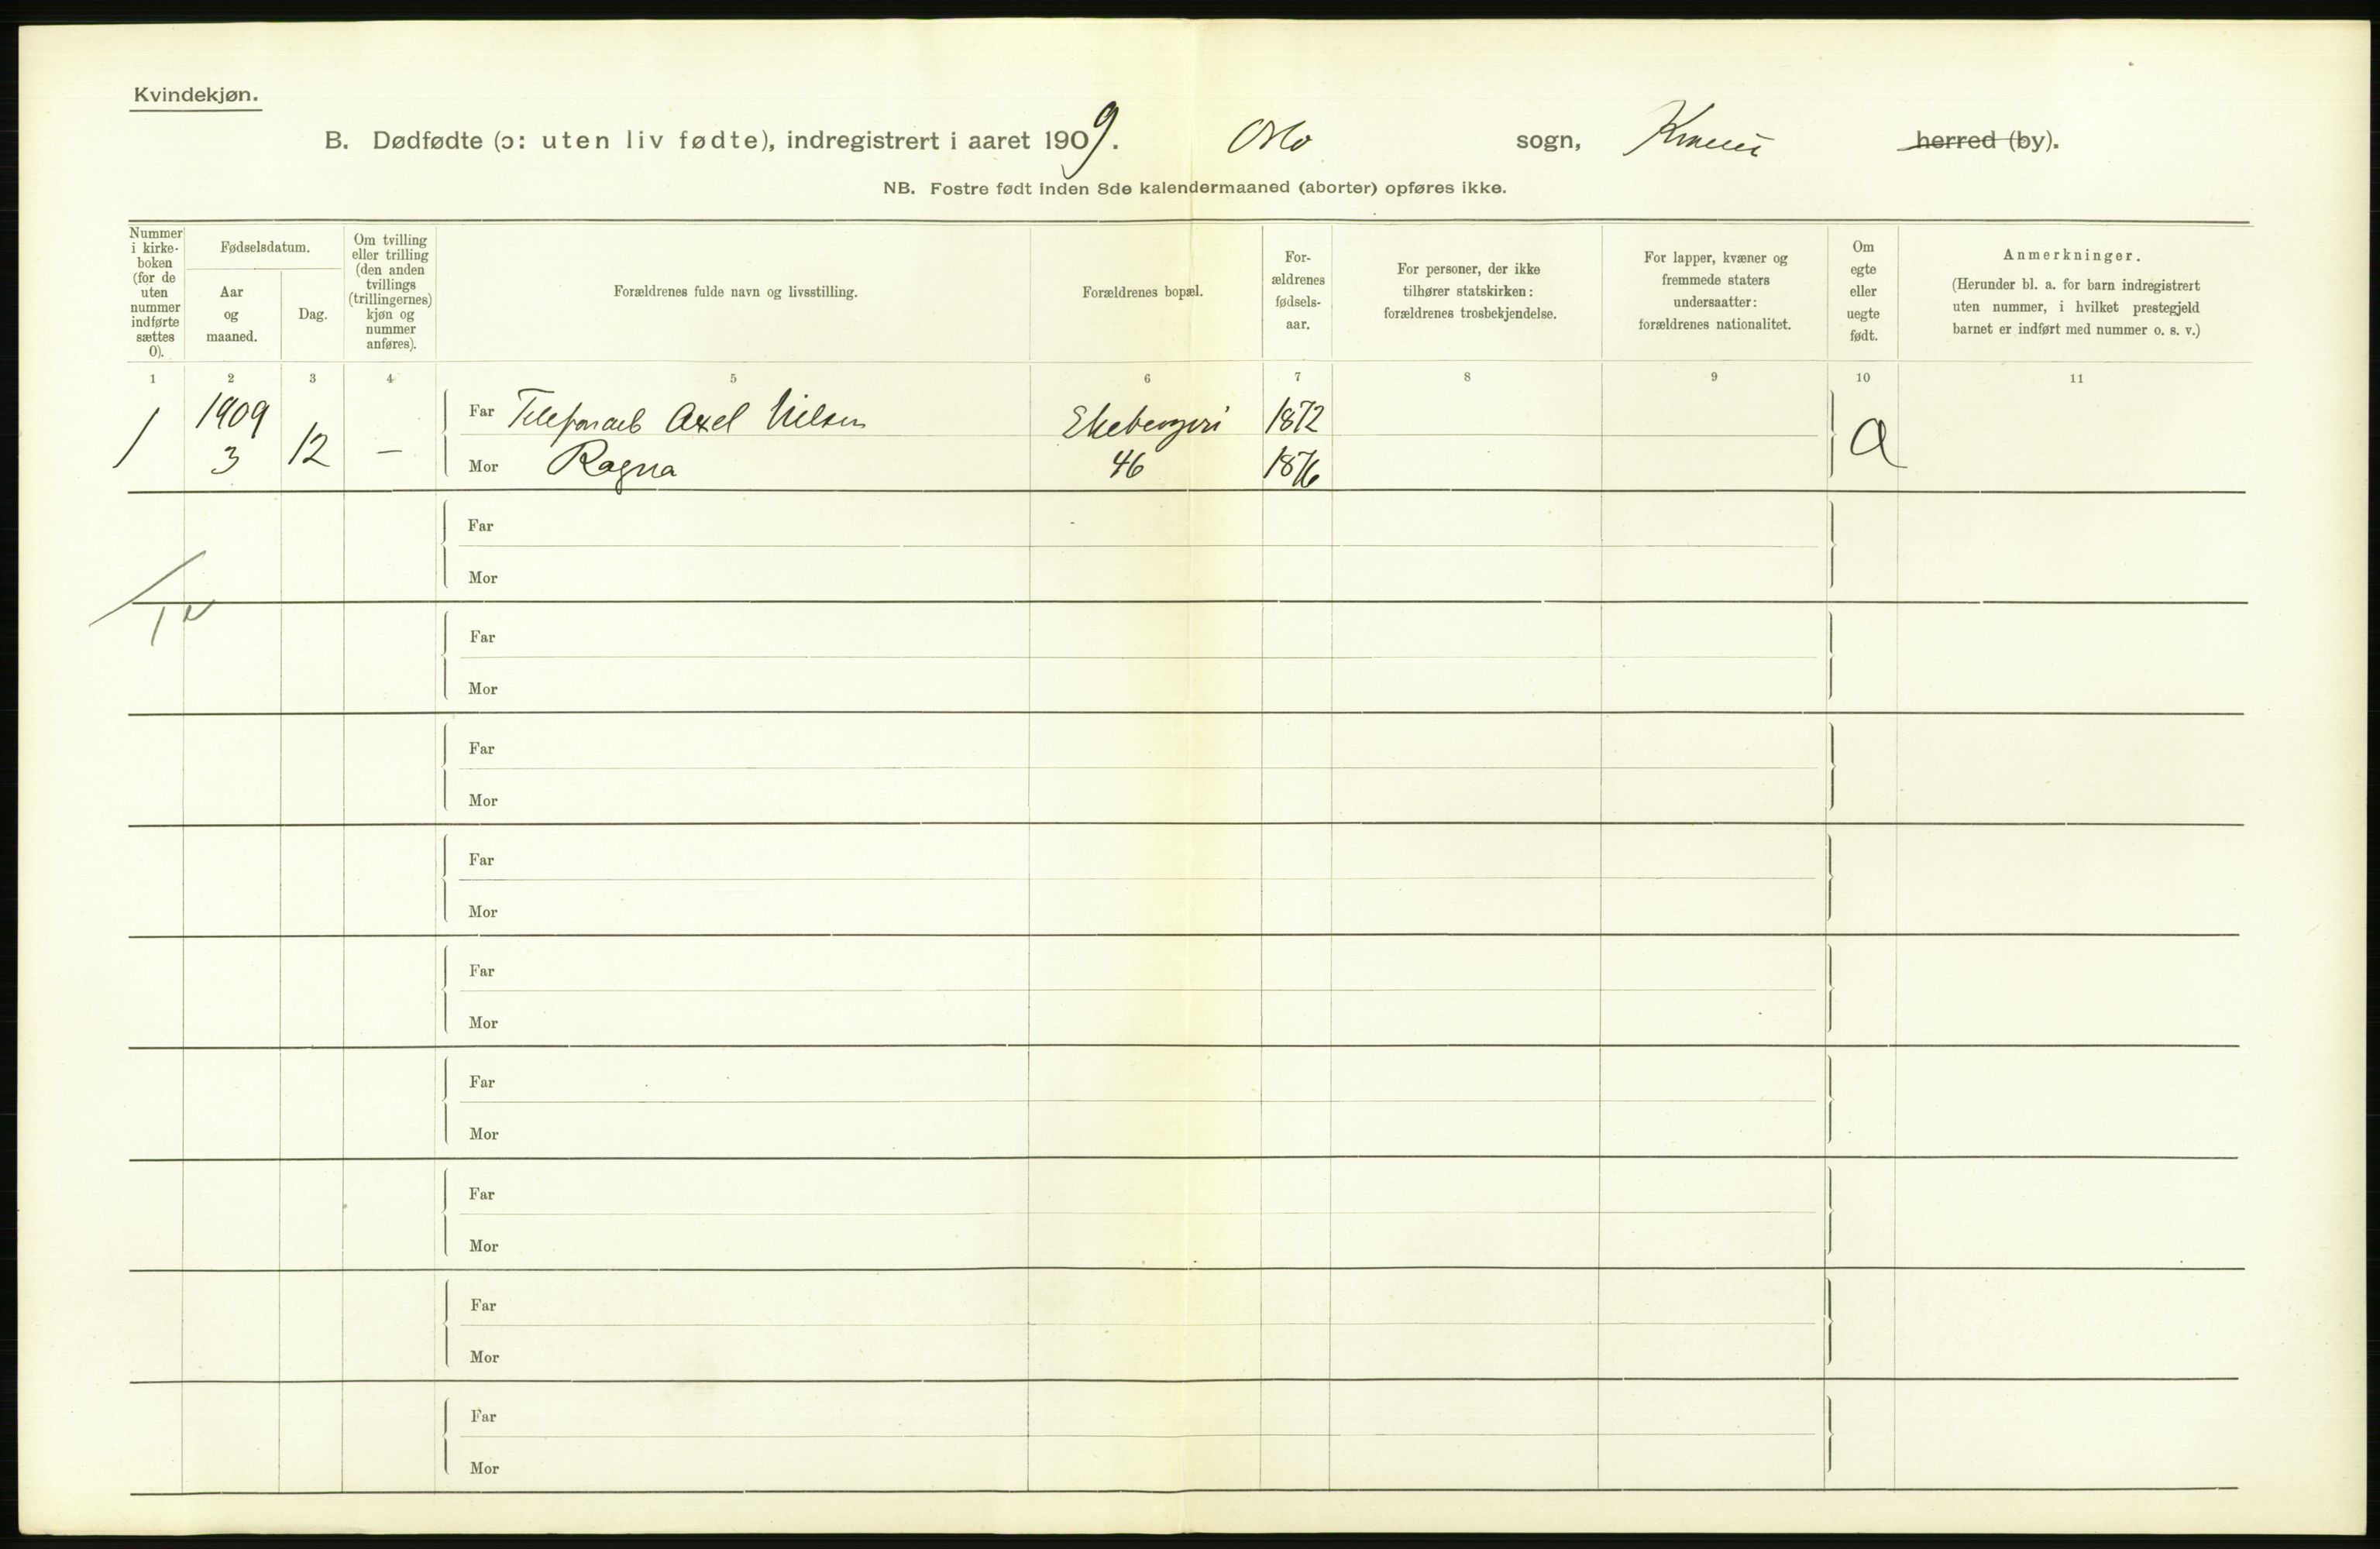 Kvindekjøn.
B. Dødfødte (ɔ: uten liv fødte), indregistrert i aaret 1909. Oslo sogn, herred (by).
NB. Fostre født inden 8de kalendermaaned (aborter) opføres ikke.
Nummer i kirke-boken (for de uten nummer indførte sættes 0).
Fødselsdatum.
Aar og maaned.
Dag.
Om tvilling eller trilling (den anden tvillings (trillingernes) kjøn og nummer anføres).
Forældrenes fulde navn og livsstilling.
Forældrenes bopæl.
For-ældrenes fødsels-aar.
For personer, der ikke tilhører statskirken: forældrenes trosbekjendelse.
For lapper, kvæner og fremmede staters undersaatter: forældrenes nationalitet.
Om egte eller uegte født.
Anmerkninger.
(Herunder bl. a. for barn indregistrert uten nummer, i hvilket prestegjeld barnet er indført med nummer o. s. v.)
1 2 3 4 5 6 7 8 9 10 11
1 1909 3 12 –
Far Telefonarb Axel Nilsen 1872
Mor Ragna 46 1876
Far
Mor
Far
Mor
Far
Mor
Far
Mor
Far
Mor
Far
Mor
Far
Mor
Far
Mor
Far
Mor